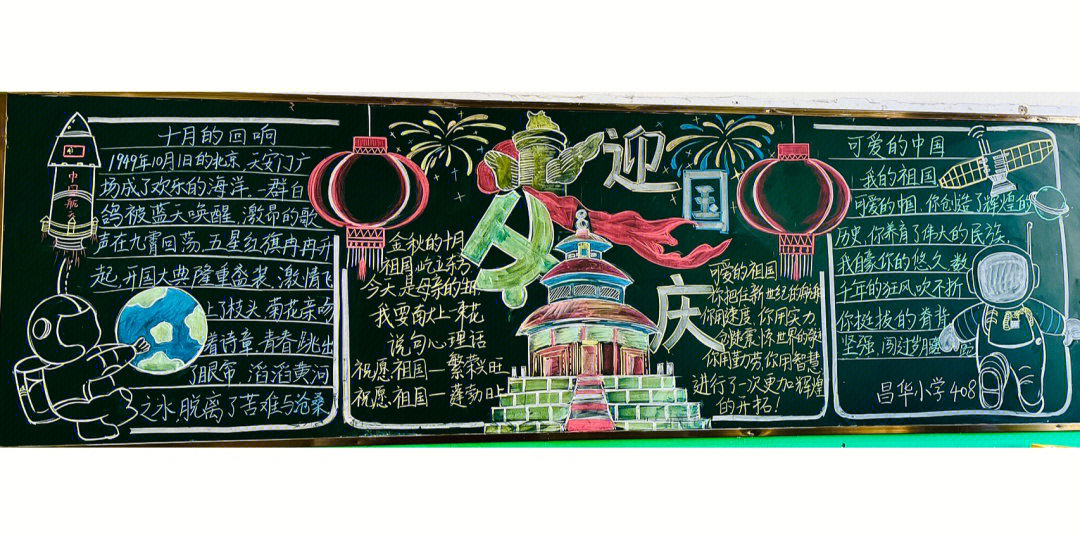 中国航天
十月的回响
1949年10月1日的北京,天安门广
场成了欢乐的海洋.一群白
鸽被蓝天唤醒,激昂的歌
声在九霄回荡.五星红旗冉冉升
起,开国大典隆重盛装,激情飞
上了枝头,菊花亲吻
着诗章,青春跳出
了眼帘,滔滔黄河
之水,脱离了苦难与沧桑
迎国庆
金秋的十月
祖国屹立东方
今天是母亲的生日
我要献上一束花
说句心里话
祝愿祖国一繁荣兴旺
祝愿祖国一蓬勃日上
可爱的祖国
你把住新世纪的
你用速度,你用实力
震惊世界的
你用勤劳,你用智慧
进行了一次更加辉煌
的开拓!
可爱的中国
我的祖国
可爱的中国,你创造了辉煌的
历史,你养育了伟大的民族,
我自豪你的悠久,数
千年的狂风吹不折
你挺拔的脊背
坚强,闯过
昌华小学408